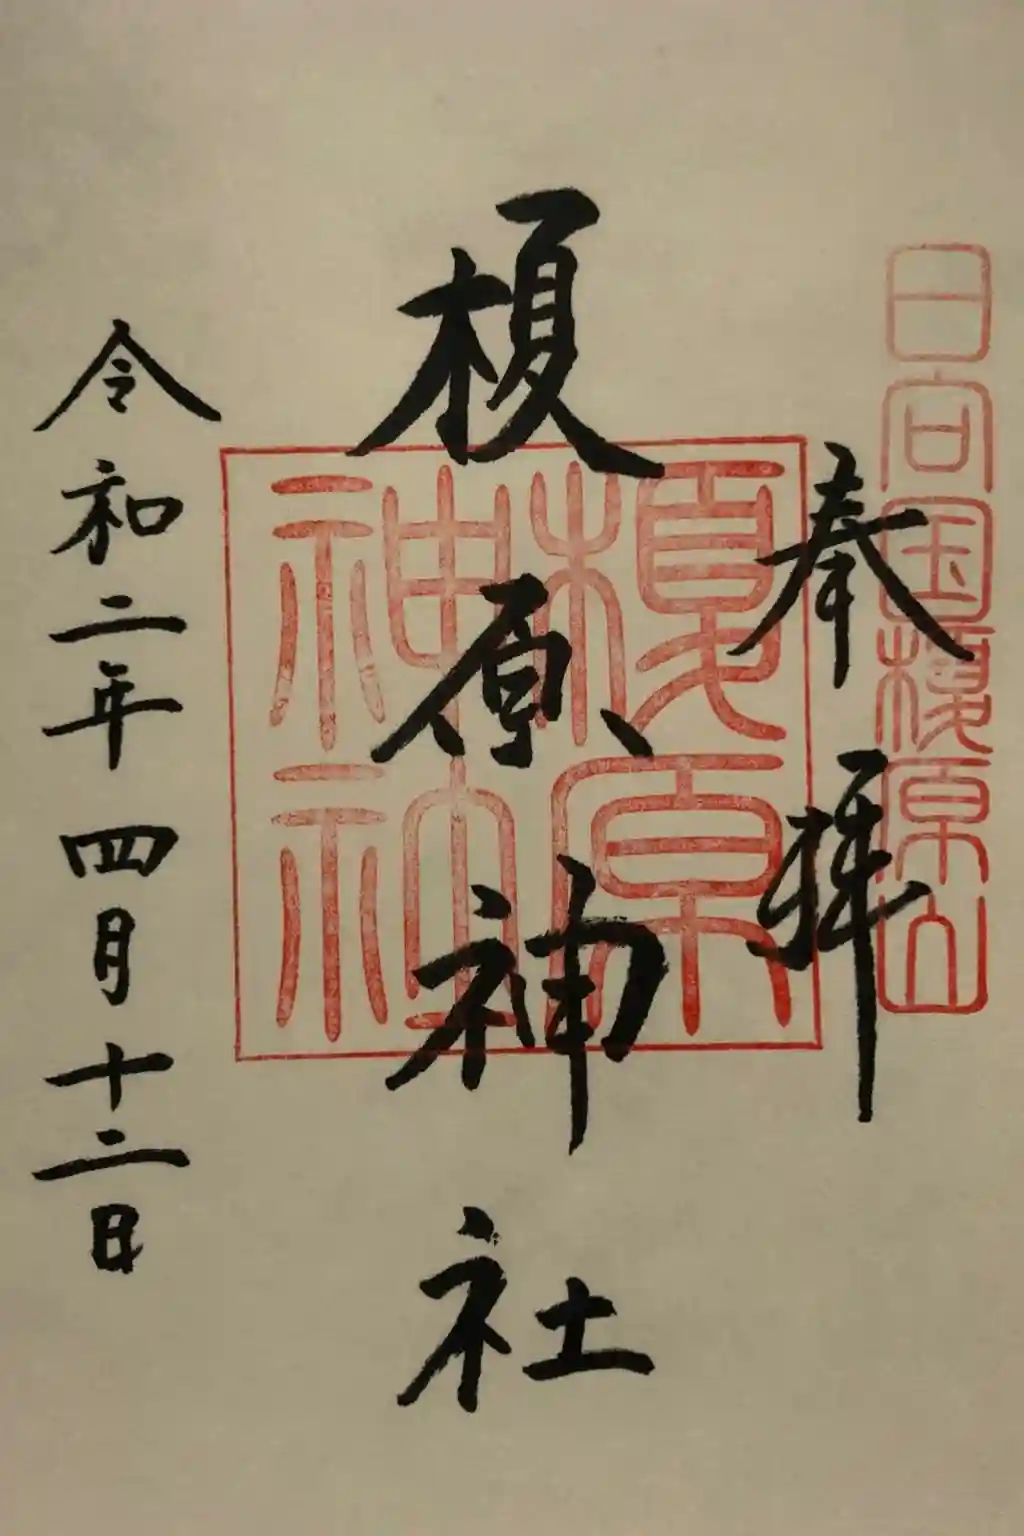 日向国榎原山
奉拝
榎原神社
榎原神社
令和二年四月十二日